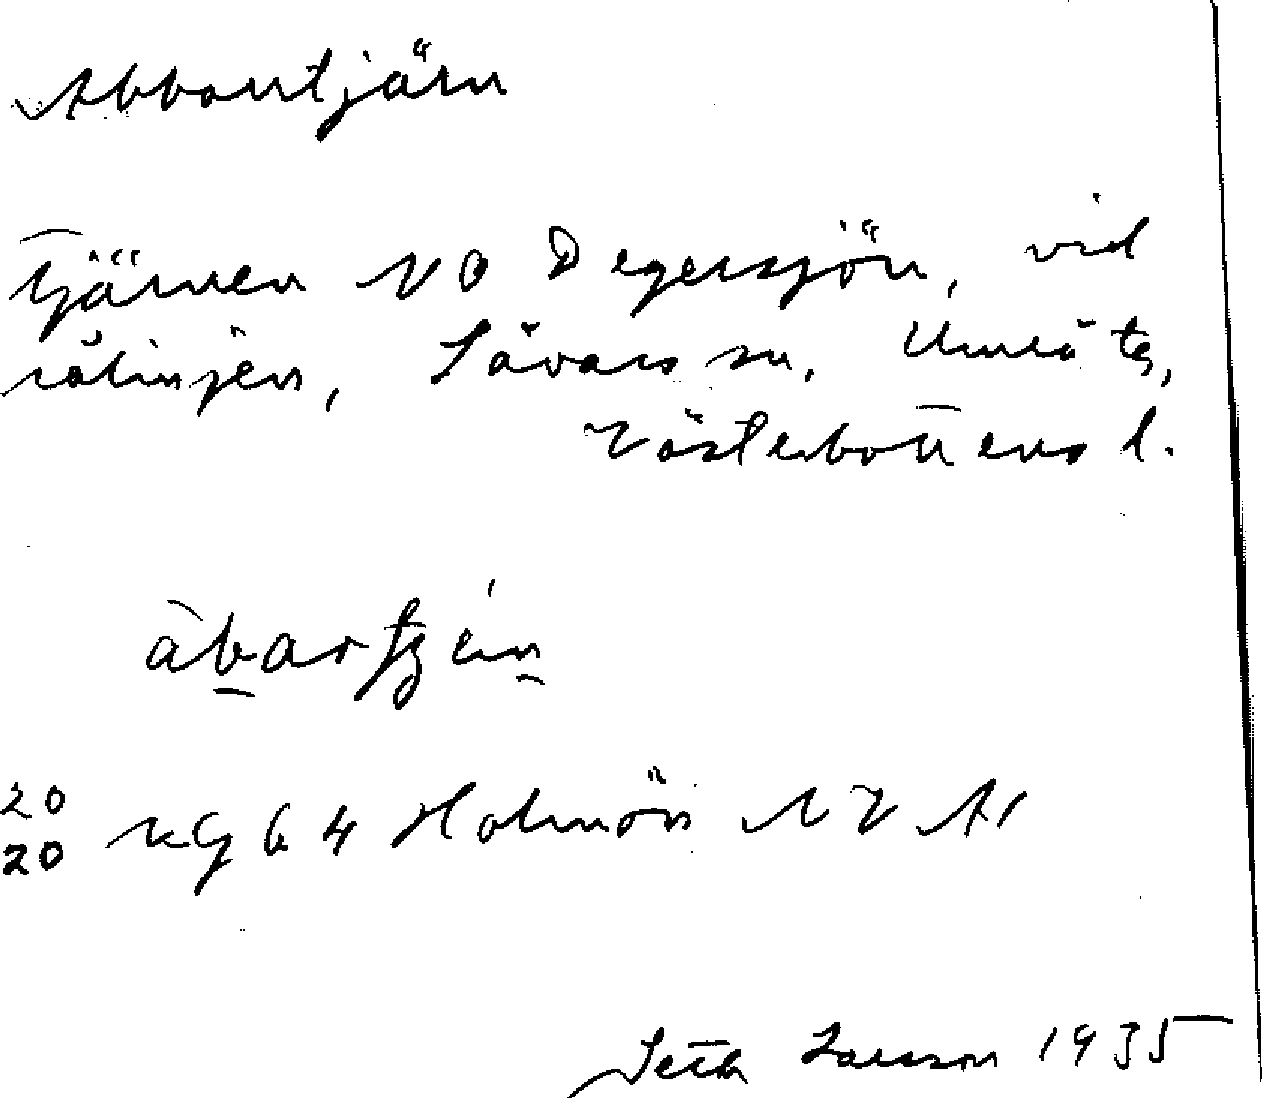 Abbortjärn
Tjärnen NO Degersjön, vid
rålinjen, Sävars sn, Umeå tg,
Västerbottens l.
20 KG 64 Holmön NV A1
20
Seth Larsson 1935